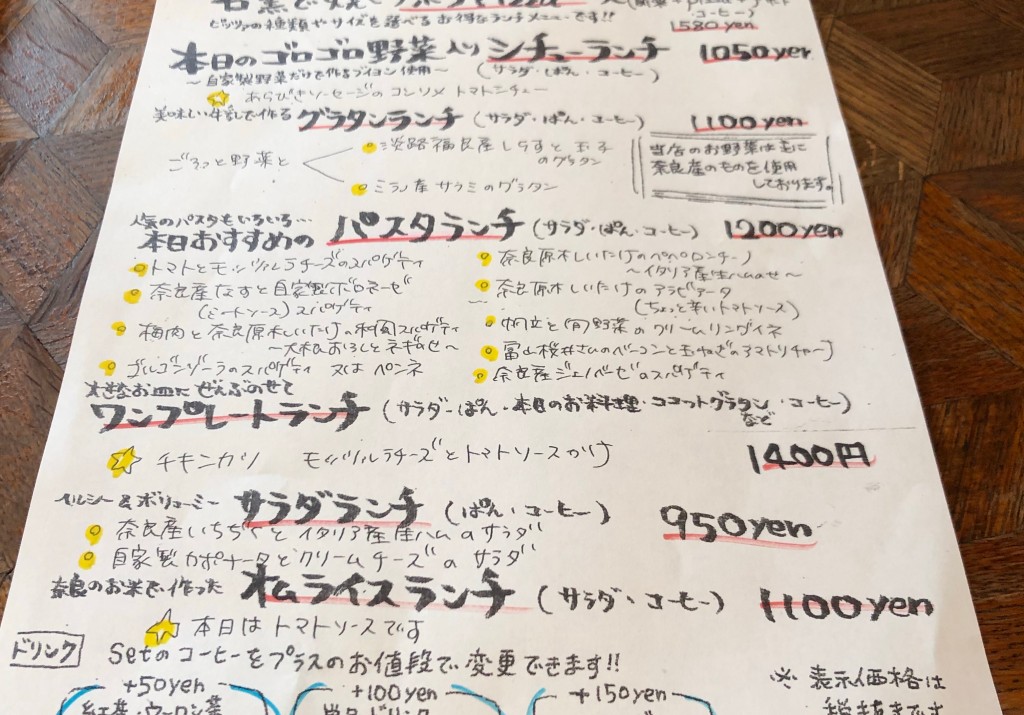 ピッツァの種類やサイズを選べるお得なランチメニューです!!
コーヒー)
1580yen
本日のゴロゴロ野菜入り シチューランチ 1050yen
～自家製野菜だけで作るブイヨン使用～ (サラダ・ぱん・コーヒー)
☆ あらびきソーセージのコンソメトマトシチュー
美味しい牛乳で作る グラタンランチ (サラダ・ぱん・コーヒー) 1100yen
ごろっと野菜と
淡路福良産しらすと玉子
のグラタン
ミラノ産サラミのグラタン
当店のお野菜は主に
奈良産のものを使用
しております。
人気のパスタもいろいろ…
本日おすすめの パスタランチ (サラダ・ぱん・コーヒー) 1200yen
トマトとモッツァレラチーズのスパゲティ
奈良産なすと自家製ボロネーゼ
(ミートソース) スパゲティ
梅肉と奈良原木しいたけの和風スパゲティ
～大根おろしとネギのせ～
ゴルゴンゾーラのスパゲティ 又は ペンネ
奈良原木しいたけのペペロンチーノ
～イタリア産生ハムのせ～
奈良原木しいたけのアラビアータ
(ちょっと辛いトマトソース)
帆立と 野菜のクリームリングイネ
富山桜井さんのベーコンと玉ねぎのアマトリチャーノ
奈良産ジェノベーゼのスパゲティ
大きなお皿にぜんぶのせて
ワンプレートランチ (サラダ・ぱん・本日のお料理・ココットグラタン・コーヒー)
など
☆ チキンカツ モッツァレラチーズとトマトソースかけ 1400円
ヘルシー&ボリューミー サラダランチ (ぱん・コーヒー) 950yen
奈良産いちぢくとイタリア産生ハムのサラダ
自家製カポナータとクリームチーズのサラダ
奈良のお米で作った オムライスランチ (サラダ、コーヒー) 1100yen
☆ 本日はトマトソースです
ドリンク Setのコーヒーをプラスのお値段で変更できます!!
+50yen
紅茶・ウーロン茶
+100yen
+150yen
※ 表示価格は
税抜きです